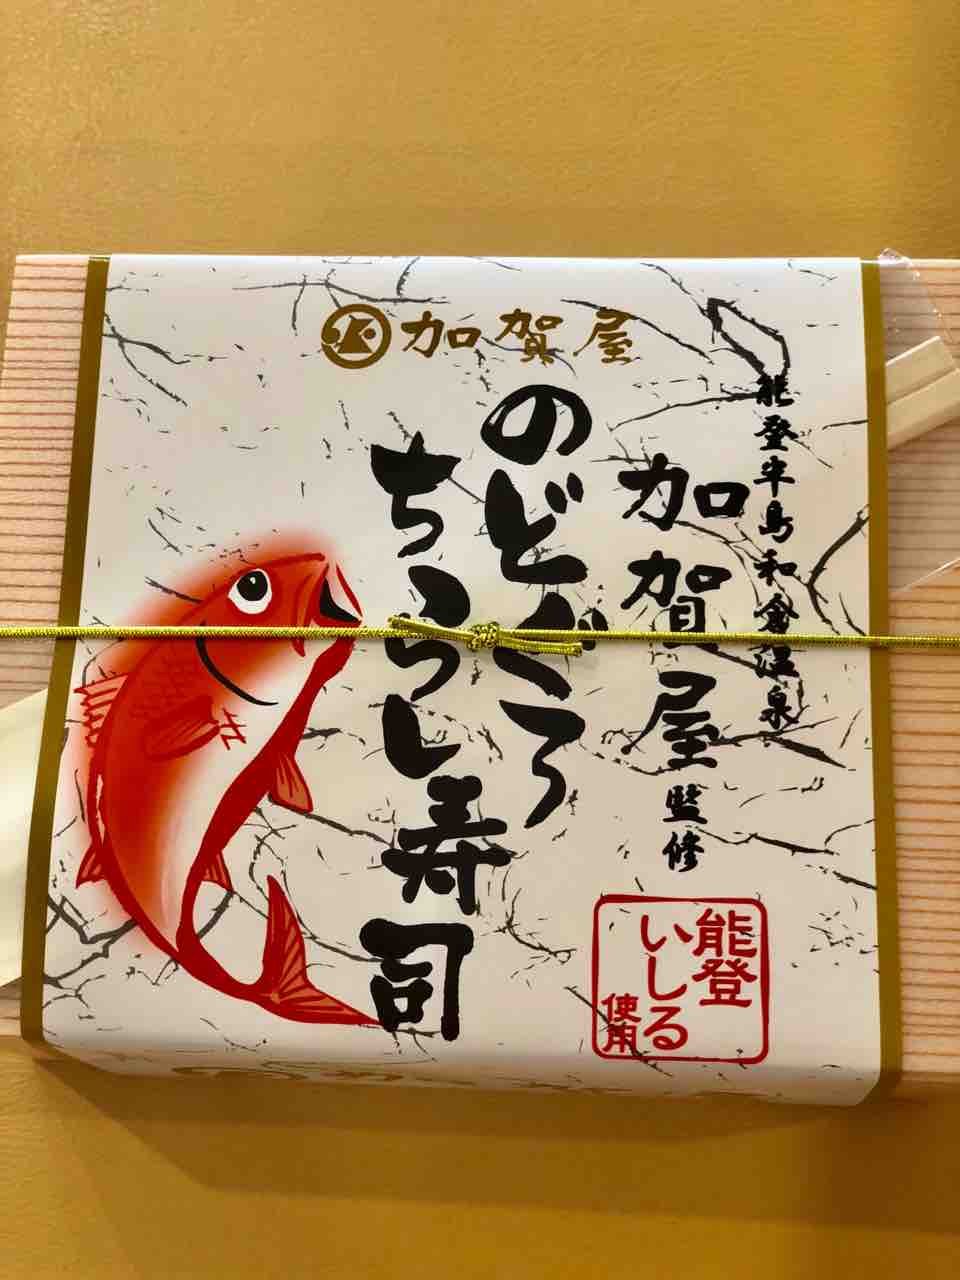 加賀屋
能登半島和倉温泉
加賀屋監修
のどぐろ
ちらし寿司
能登
いしる
使用